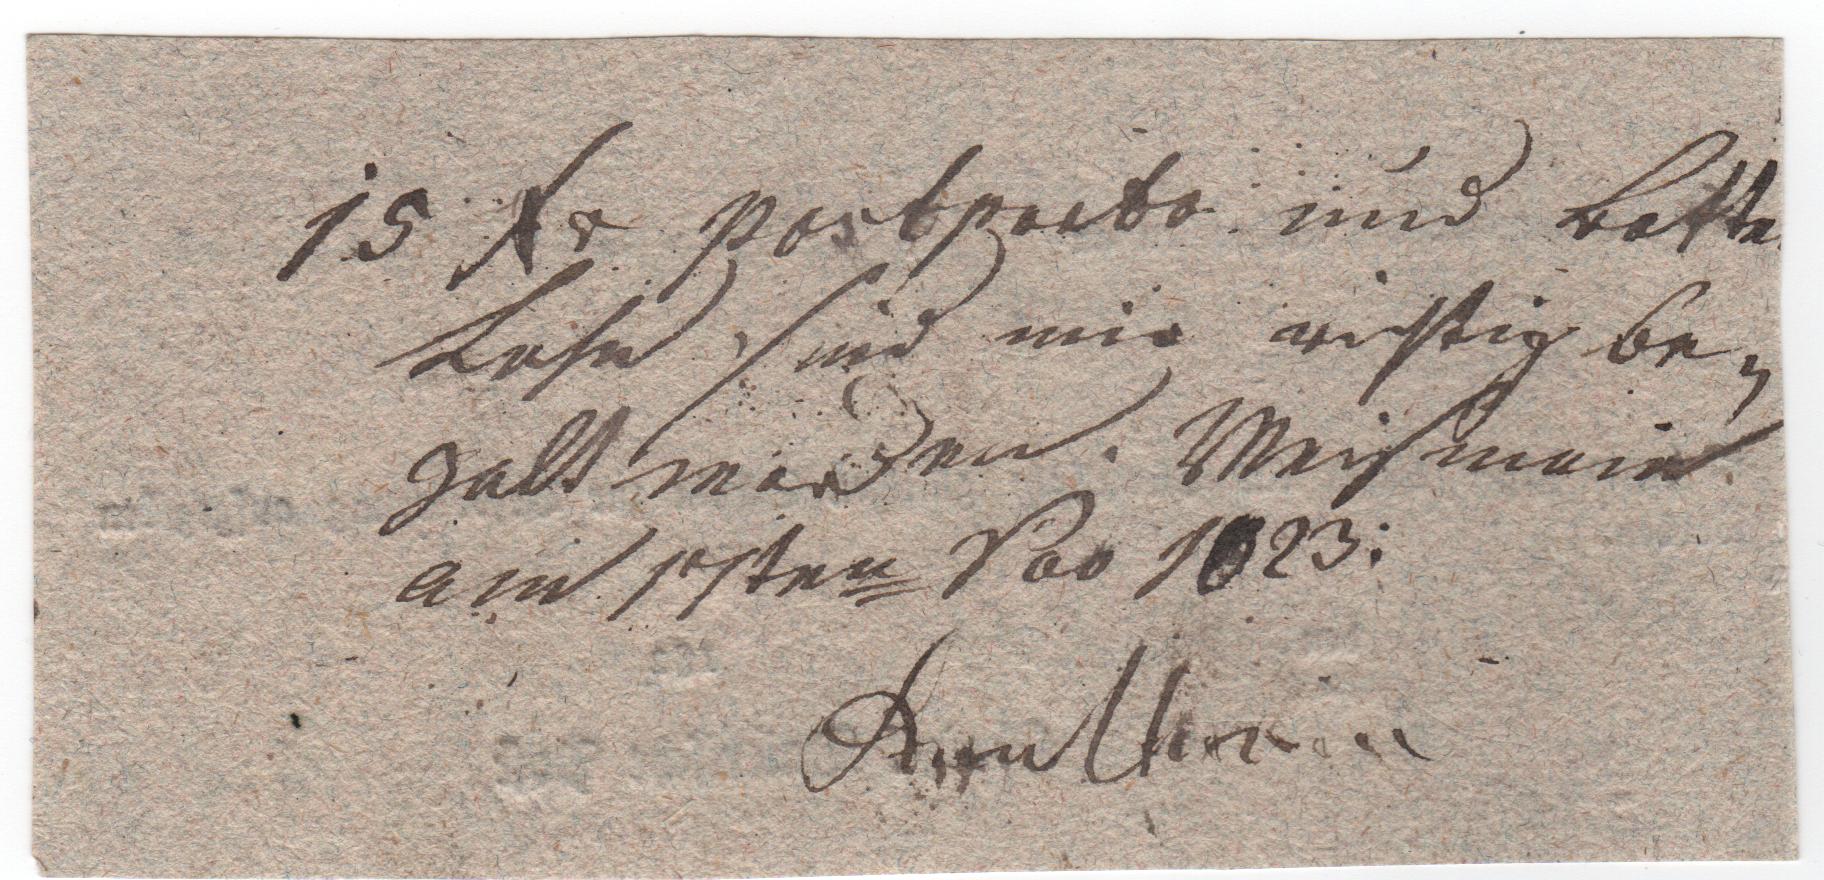 15 Xr postporto und botten
Lohn sind mir richtig be¬
zalt worden. Weismain
am 1sten Nov 1823.